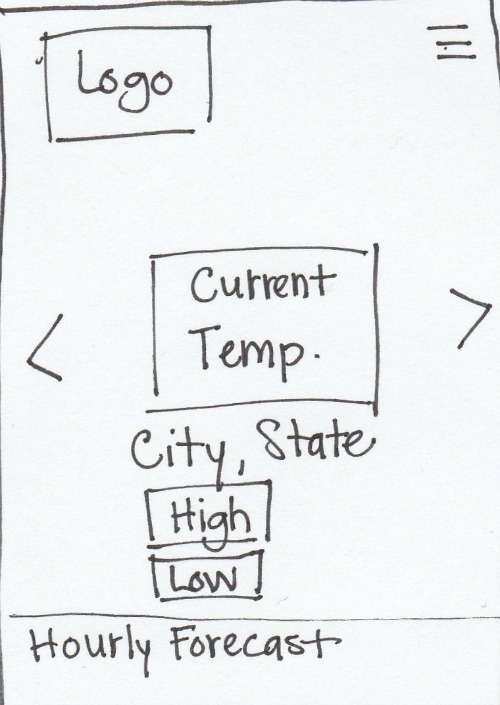 Logo
Current
Temp.
City, State
High
Low
Hourly Forecast